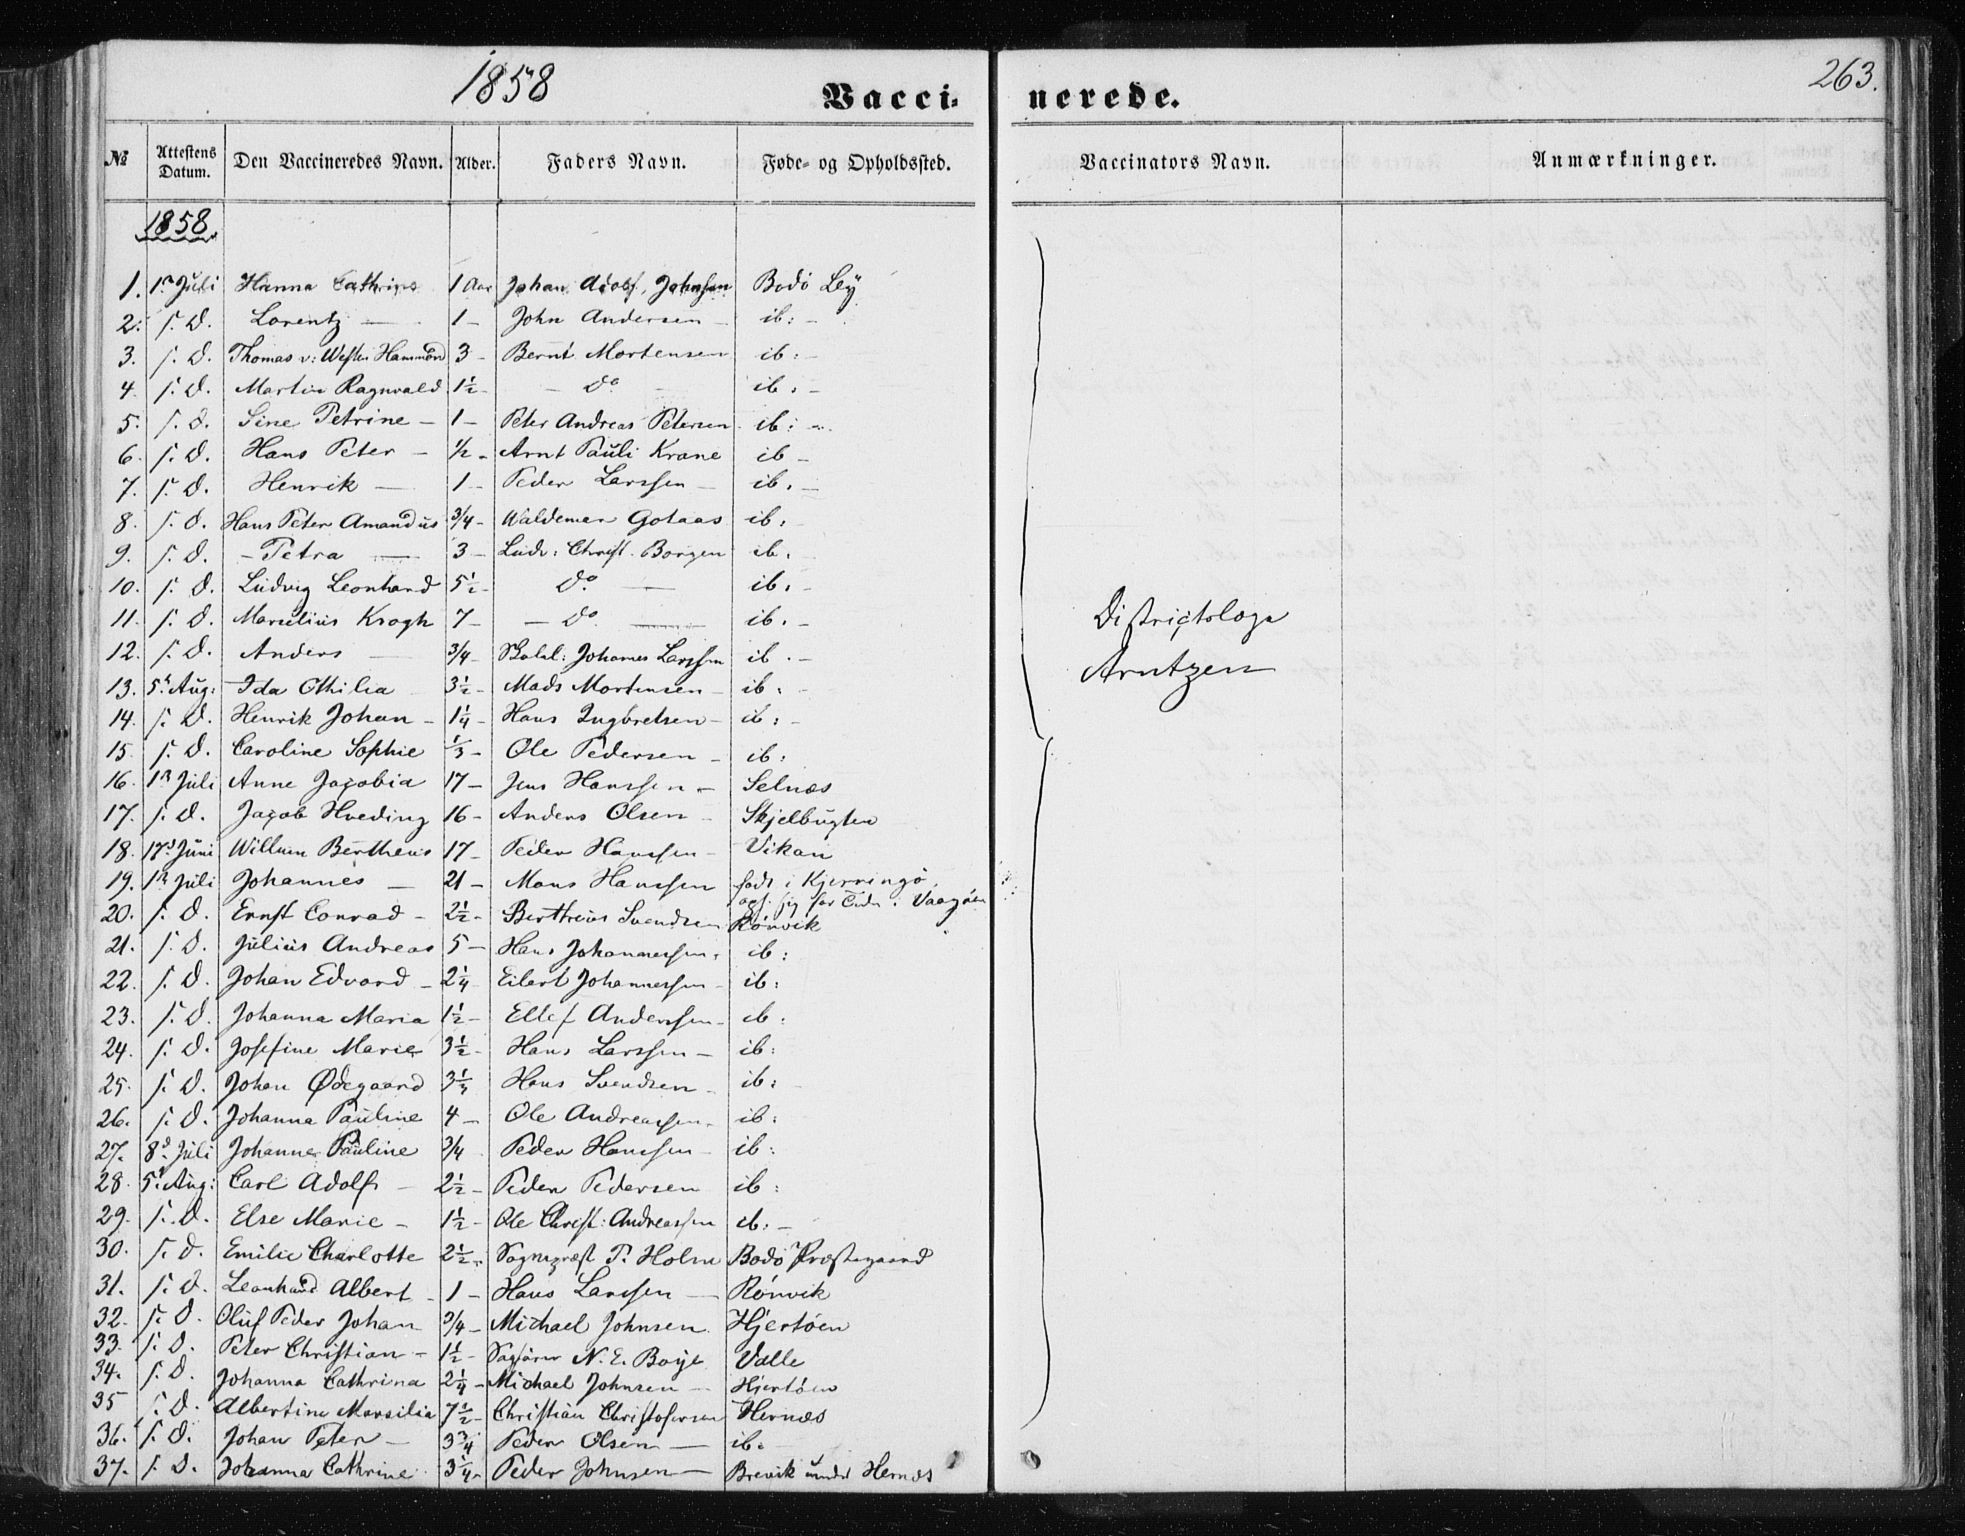 1858
Vacci-nerede.
263.
№ Attestens Datum. Den Vaccineredes Navn. Alder. Faders Navn. Føde- og Opholdssted. Vaccinators Navn. Anmærkninger.
1858.
1. 1ste Juli Hanna Cathrine 1 Aar Johan Adolf Johnsen Bodø Ley
2. s. D. Lorentz — 1 — John Andersen — ib: —
3. s. D. Thomas v: Westen Hammond 3 — Bernt Mortensen ib: —
4. s. D. Martin Ragnvald 1½ — — do — ib: —
5. s. D. Sine Petrine — 1 — Peter Andreas Petersen ib: —
6. s. D. Hans Peter — ½ — Arnt Pauli Krane ib —
7. s. D. Henrik — 1 — Peder Larssen — ib. —
8. s. D. Hans Peter Amandus ¾ — Waldemar Gotaas ib:
9. s. D. — Petra — 3 — Ludv: Christ. Borgen ib.
10. s. D. Ludvig Leonhard 5½ — do — ib. —
11. s. D. Marselius Krogh 7 — — do — ib. —
12. s. D. Anders — ¾ — Johannes Larssen ib. —
13. 5te Aug: Ida Othilia 3½ — Mads Mortensen — ib: —
14. s. D. Henrik Johan — 1¼ — Hans Ingbretsen — ib: —
15. s. D. Caroline Sophie ⅓ — Ole Pedersen — ib:
16. 1ste Juli Anne Jacobia 17 — Jens Hanssen — Selnæs
17. s. D. Jacob Hveding 16 — Anders Olsen — Skjelbugten
18. 17de Juni Willum Bertheus 17 — Peder Hanssen — Vikan
19. 1ste Juli Johannes — 21 — Mons Hanssen født i Kjerringø,
oph. sig for Tiden i Vaagøen
20. s. D. Ernst Conrad — 2½ — Bertheus Svendsen Rönvik
21. s. D. Julius Andreas 5 — Hans Johannessen, ib:
22. s. D. Johan Edvard — 2¼ — Eilert Johannessen — ib:
23. s. D. Johanna Maria 1½ — Ellef Anderssen — ib:
24. s. D. Josefine Marie 3½ — Hans Larssen — ib:
25. s. D. Johan Ødegaard 3⅓ Hans Svendsen — ib:
26. s. D. Johanna Pauline 4 — Ole Andreassen — ib:
27. 8de Juli Johanne Pauline ¾ Peder Hanssen — ib:
28. 5te Aug: Carl Adolf — 2½ — Peder Pedersen ib:
29. s. D. Else Marie — 1½ — Ole Christ: Andreassen ib: —
30. s. D. Emilie Charlotte 2½ — Sognepræst P. Holm Bodø Præstegaard
31. s. D. Leonhard Albert — 1 — Hans Larssen — Rönvik
32. s. D. Oluf Peder Johan ¾ — Michael Johnsen Hjertöen
33. s. D. Peter Christian — 1½ — Sagfører N. E. Boye Valle
34. s. D. Johanna Cathrina 2¼ — Michael Johnsen — Hjertöen
35 s. D. Albertine Marsilia 7½ — Christian Christofersen Hernæs
36. s. D. Johan Peter — 3¾ Peder Olsen — ib.
37. s. D. Johanna Cathrine 3¼ — Peder Johnsen — Brevik under Hernæs
Districtslæge
Arntzen